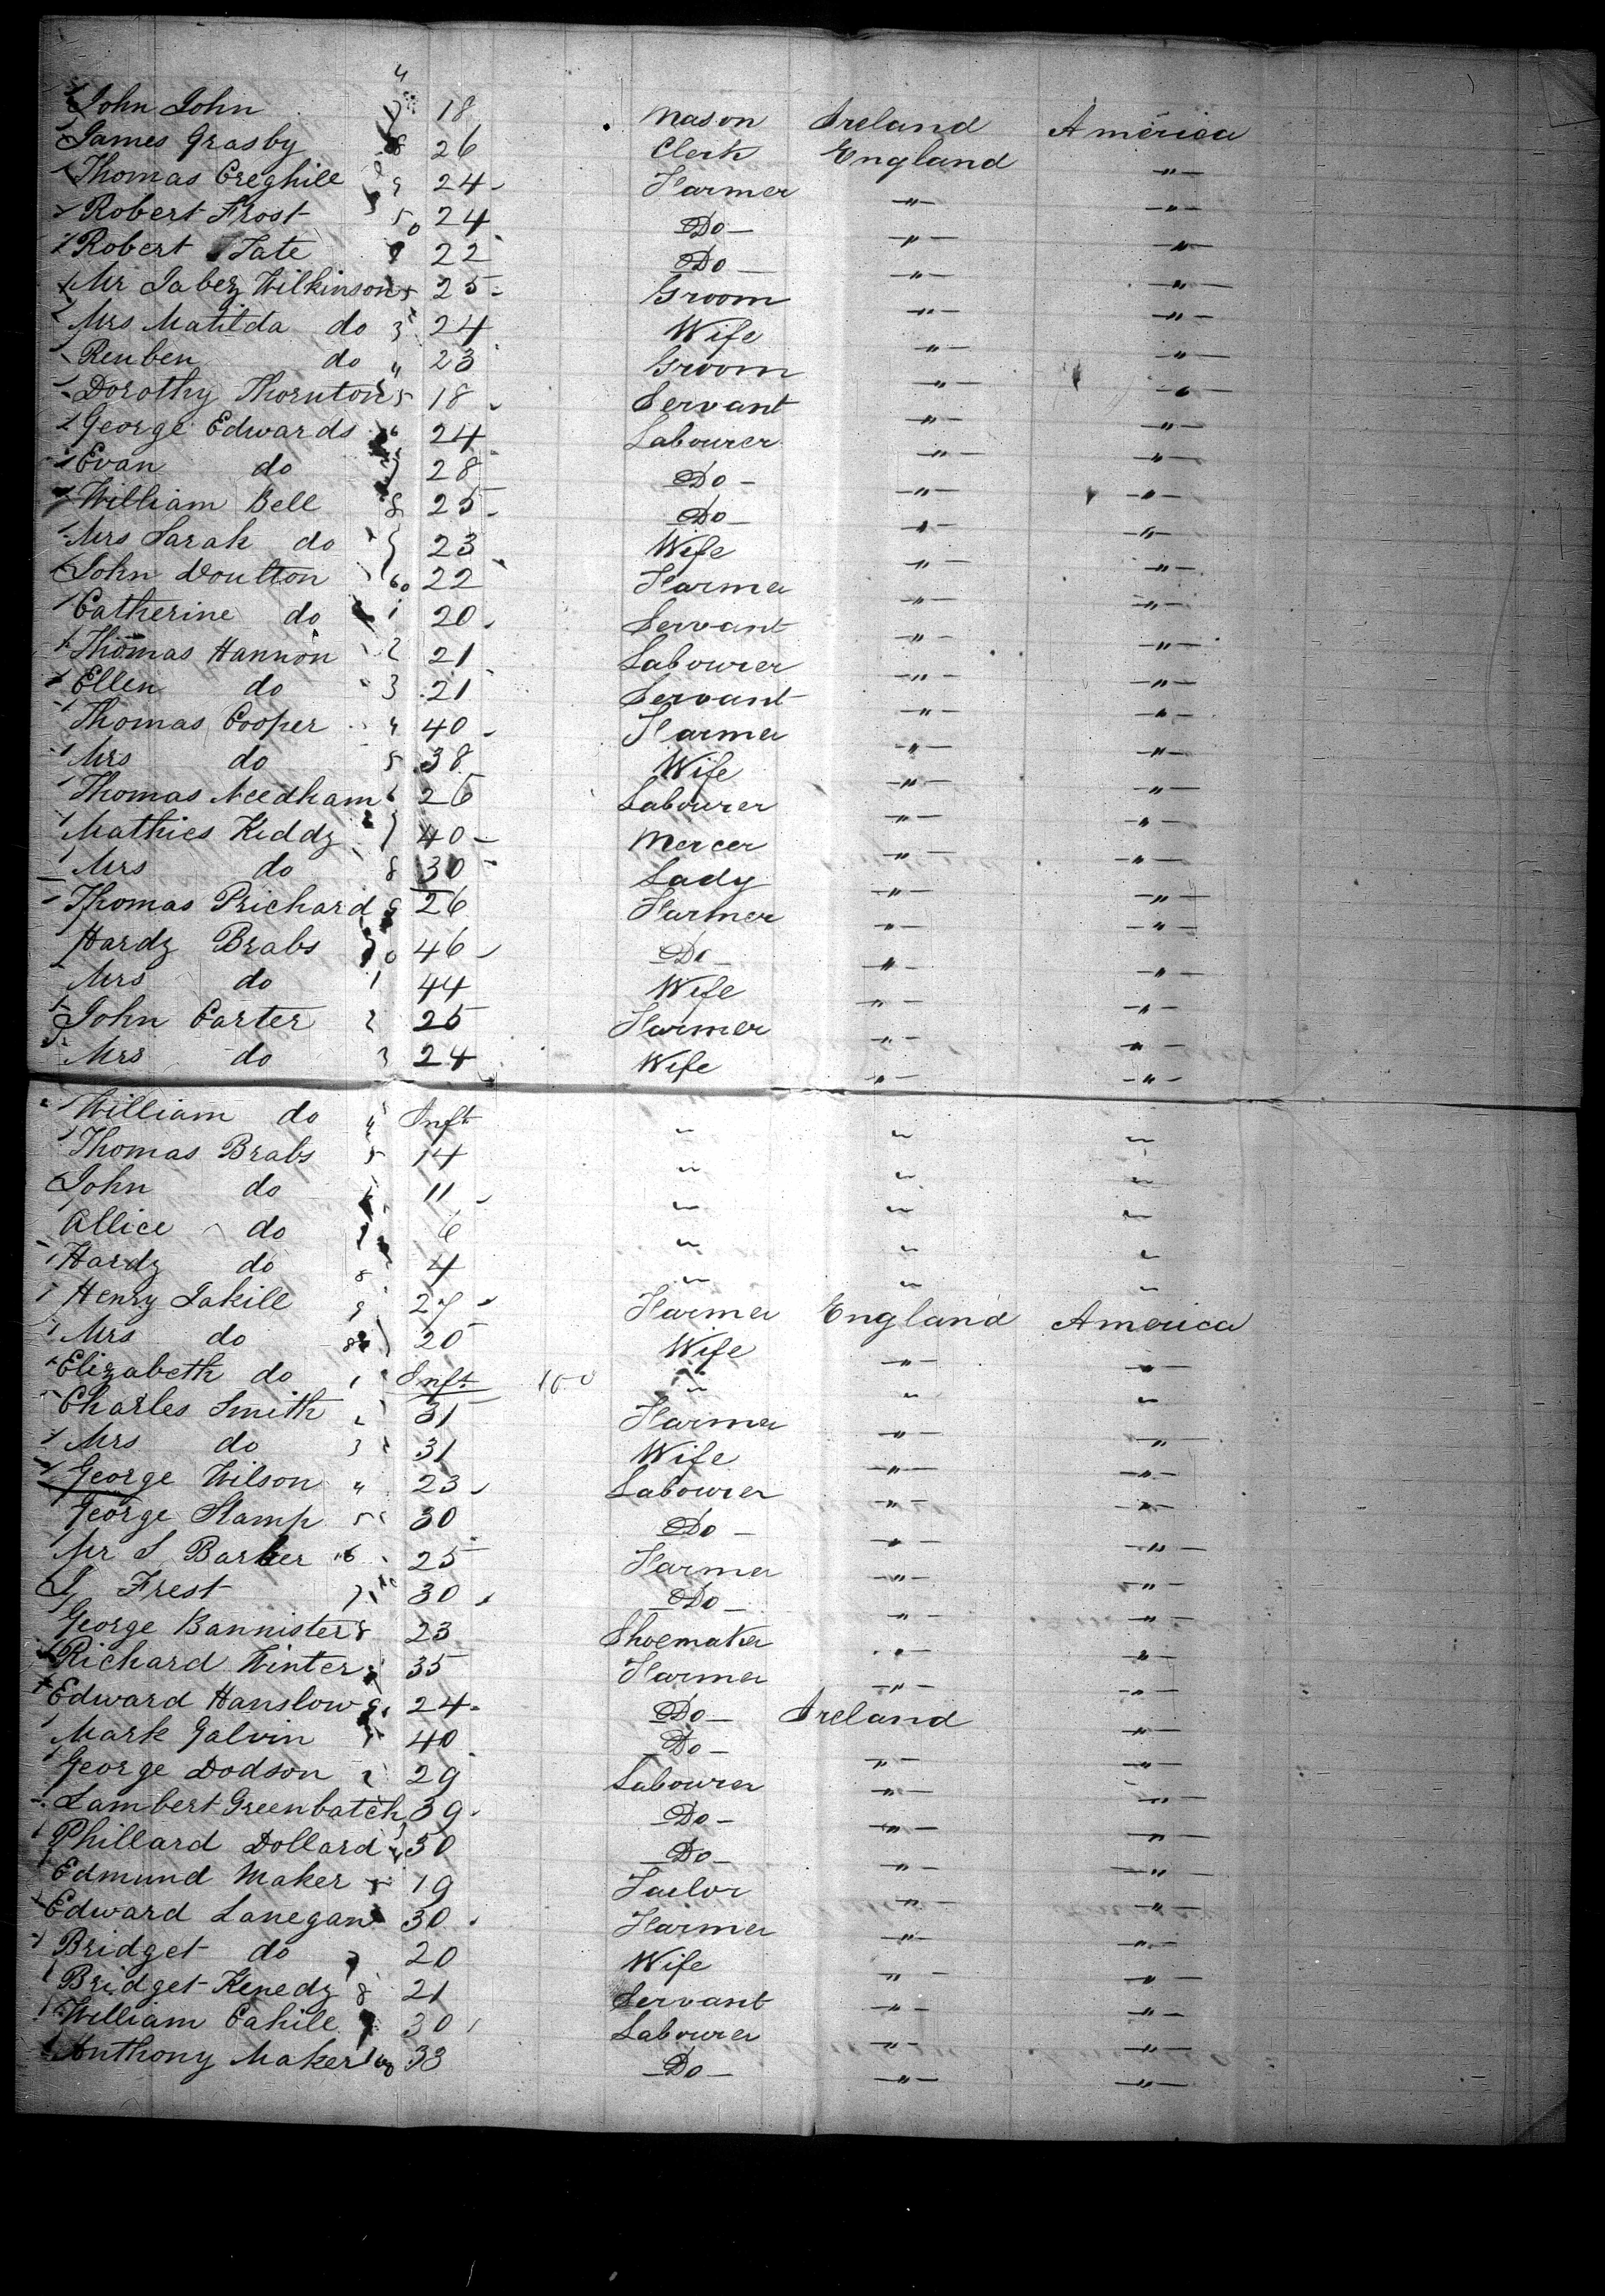 John John 7 18 Mason Ireland America
James Grasby 8 26 Clerk England "
Thomas Creghill 9 24 Farmer " "
Robert Frost 50 24 Do " "
Robert Tate 22 Do " "
Mr Jabez Wilkinson 25 Groom " "
Mrs Matilda do 3 24 Wife " "
Reuben do 4 23 Groom " "
Dorothy Thornton 5 18 Servant " "
George Edwards 6 24 Labourer " "
Evan do 7 28 Do " "
William Bell 8 25 Do " "
Mrs Sarah do 23 Wife " "
John Doulton 60 22 Farmer " "
Catherine do 1 20 Servant " "
Thomas Hannon 2 21 Labourer " "
Ellen do 3 21 Servant " "
Thomas Cooper 4 40 Farmer " "
Mrs do 5 38 Wife " "
Thomas Needham 6 26 Labourer " "
Mathies Kiddy 7 40 Mercer " "
Mrs do 8 30 Lady " "
Thomas Prichard 9 26 Farmer " "
Hardy Brabs 70 46 Do " "
Mrs do 1 44 Wife " "
John Carter 2 25 Farmer " "
Mrs do 3 24 Wife " "
William do 4 Inft " " "
Thomas Brabs 5 14 " " "
John do 6 11 " " "
Allice do 7 6 " " "
Hardy do 8 4 " " "
Henry Jakill 9 27 Farmer England America
Mrs do 80 20 Wife " "
Elizabeth do 1 Inft " " "
Charles Smith 2 31 Farmer " "
Mrs do 3 31 Wife " "
George Wilson 4 23 Labourer " "
George Stamp 5 30 Do " "
Mr S Barker 6 25 Farmer " "
J Frest 7 30 Do " "
George Bannister 8 23 Shoemaker " "
Richard Winter 9 35 Farmer " "
Edward Hanslow 24 Do Ireland "
Mark Galvin 1 40 Do " "
George Dodson 2 29 Labourer " "
Lambert Greenbatch 3 39 Do " "
Phillard Dollard 4 50 Do " "
Edmund Maker 5 19 Tailor " "
Edward Lanegan 30 Farmer " "
Bridget do 7 20 Wife " "
Bridget Kenedy 8 21 Servant " "
William Cahill 9 30 Labourer " "
Anthony Maker 100 33 Do " "